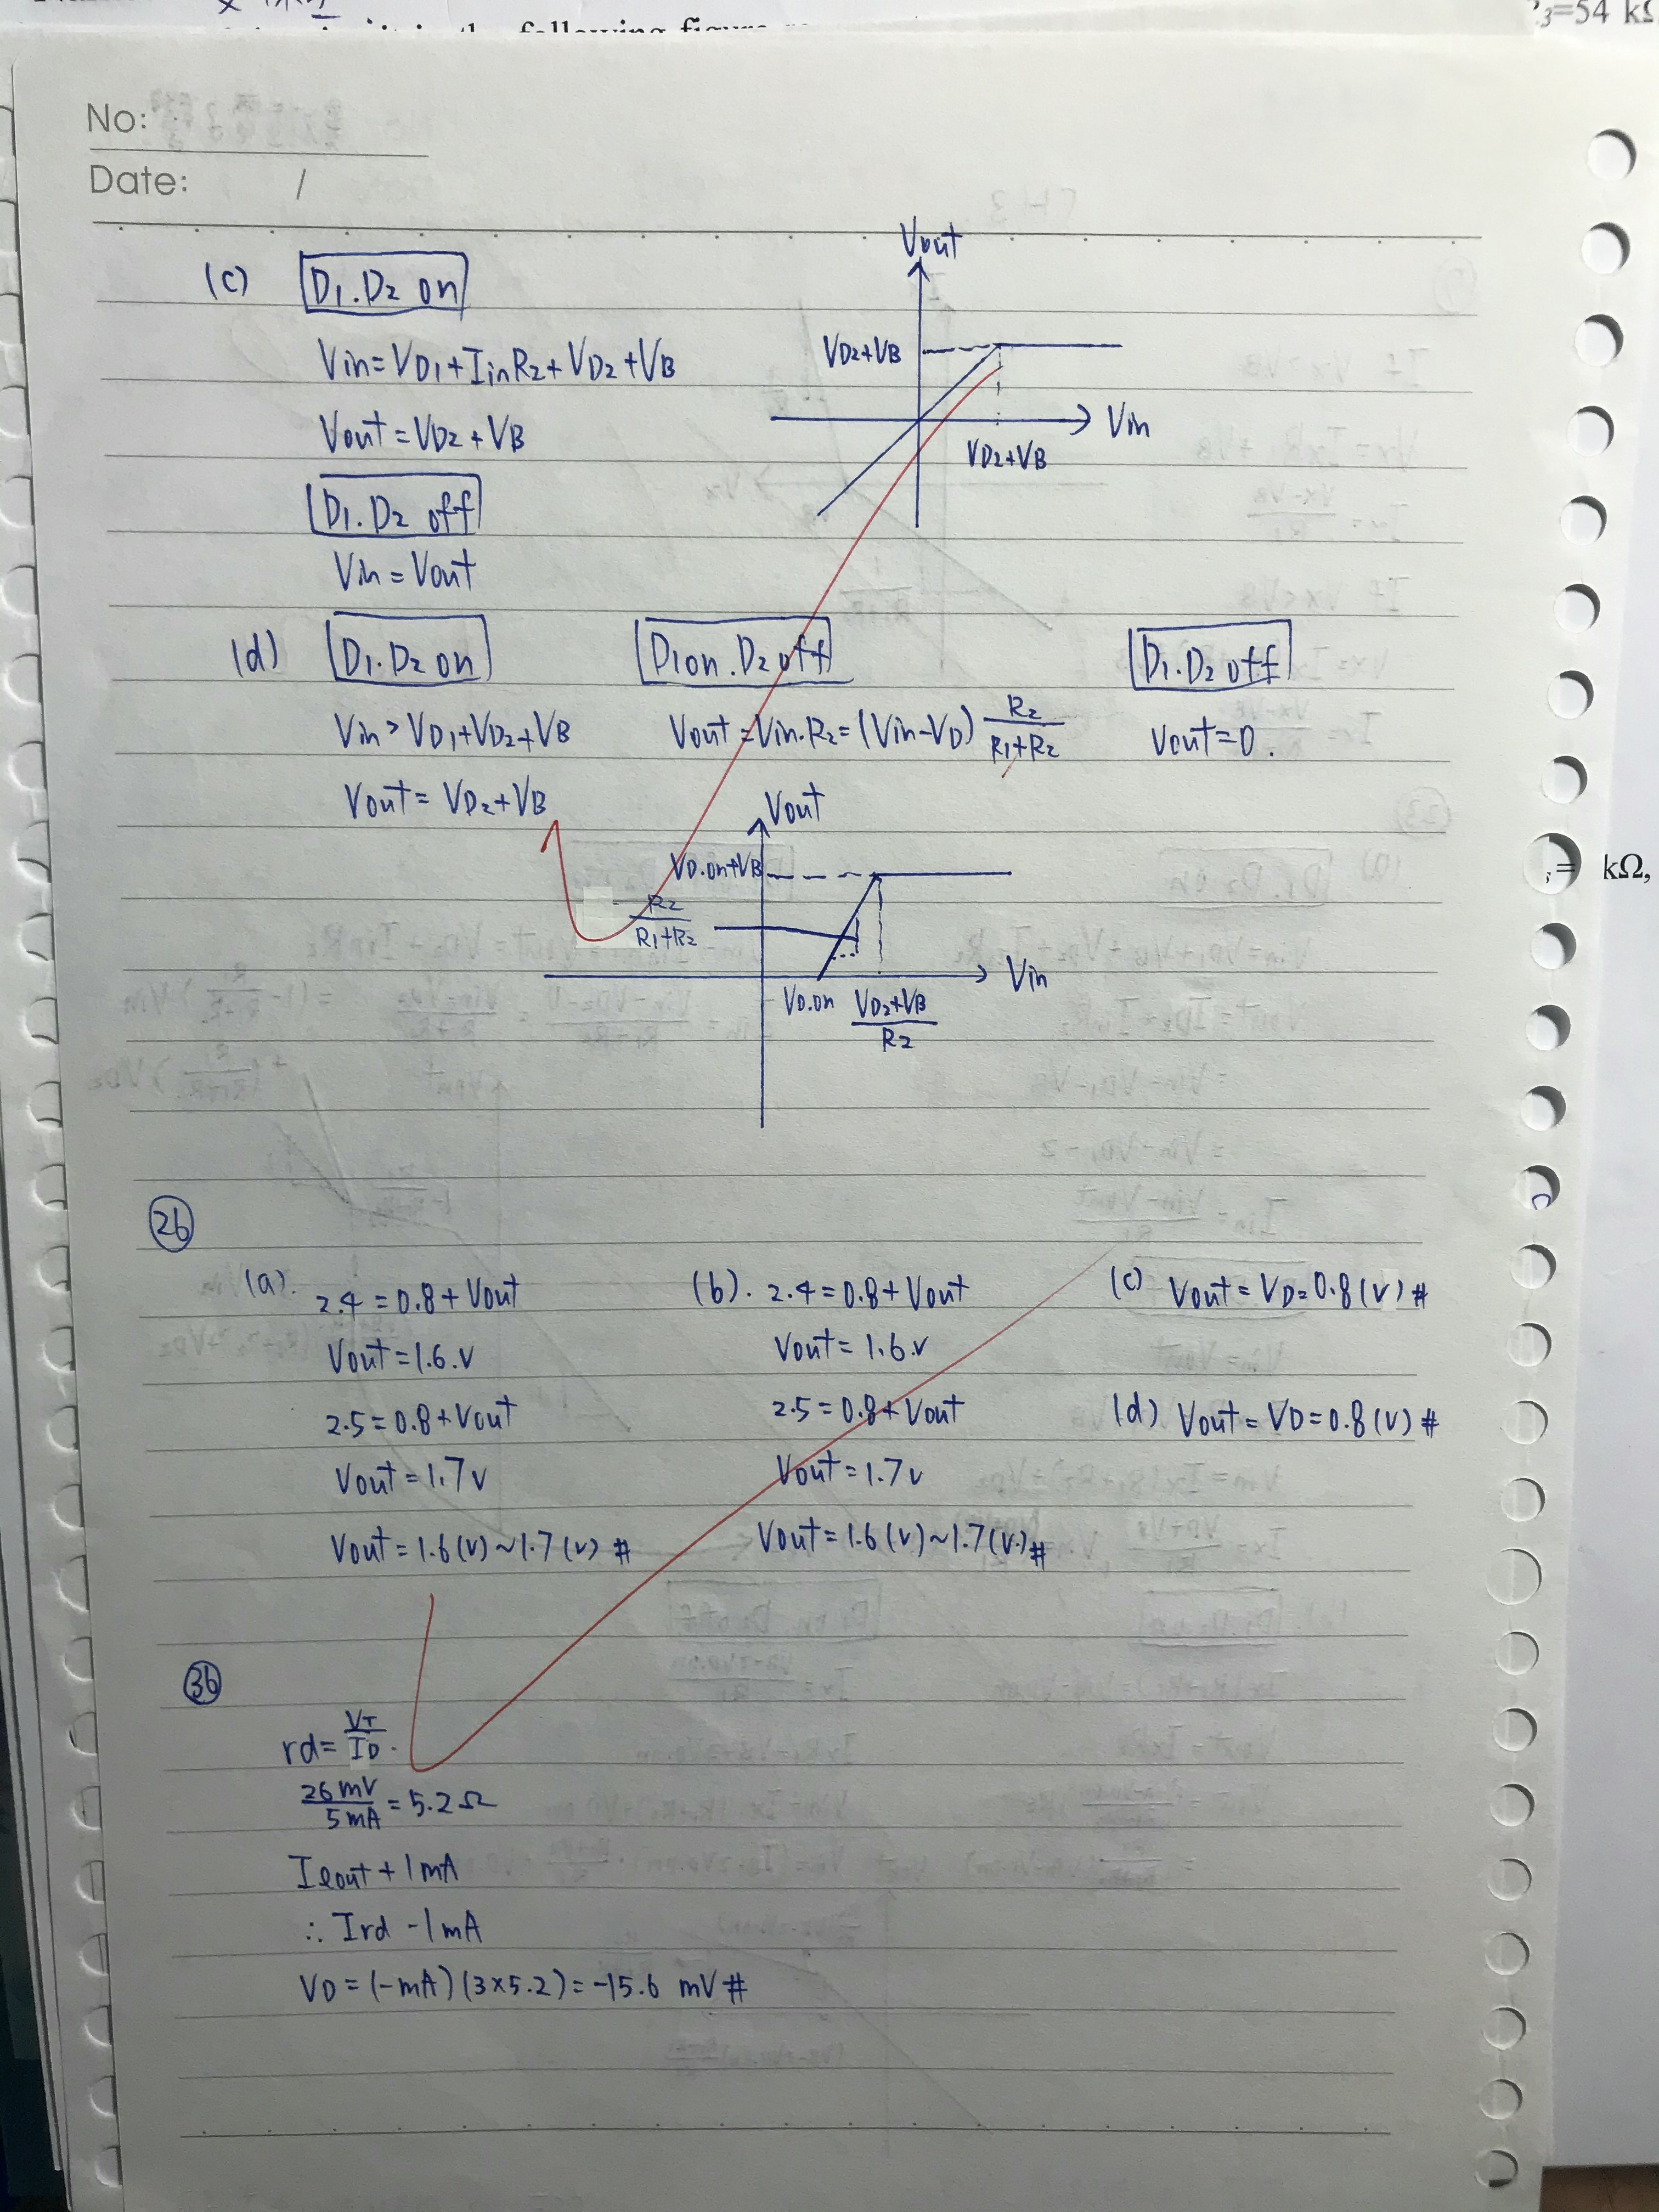 the following figure
₃=54 kΩ
No:
Date: /
(c) D₁.D₂ on
Vin=VD₁+IinR₂+VD₂+VB
Vout=VD₂+VB
D₁.D₂ off
Vin=Vout
Vout
VD₂+VB
Vin
VD₂+VB
(d) D₁.D₂ on
Vin>VD₁+VD₂+VB
Vout=VD₂+VB
D₁on.D₂off
Vout=Vin.R₂=(Vin-VD) R₂/(R₁+R₂)
D₁.D₂ off
Vout=0.
Vout
VD.on+VB
R₂/(R₁+R₂)
Vin
VD.on
(VD₂+VB)/R₂
= kΩ,
26
(a). 2.4=0.8+Vout
Vout=1.6.V
2.5=0.8+Vout
Vout=1.7V
Vout=1.6(V)~1.7(V) #
(b). 2.4=0.8+Vout
Vout=1.6.V
2.5=0.8+Vout
Vout=1.7V
Vout=1.6(V)~1.7(V.)#
(c) Vout=VD=0.8(V)#
(d) Vout=VD=0.8(V)#
36
rd=VT/ID.
26mV/5mA=5.2Ω
Ilout+1mA
∴ Ird -1mA
VD=(-mA)(3×5.2)=-15.6 mV#